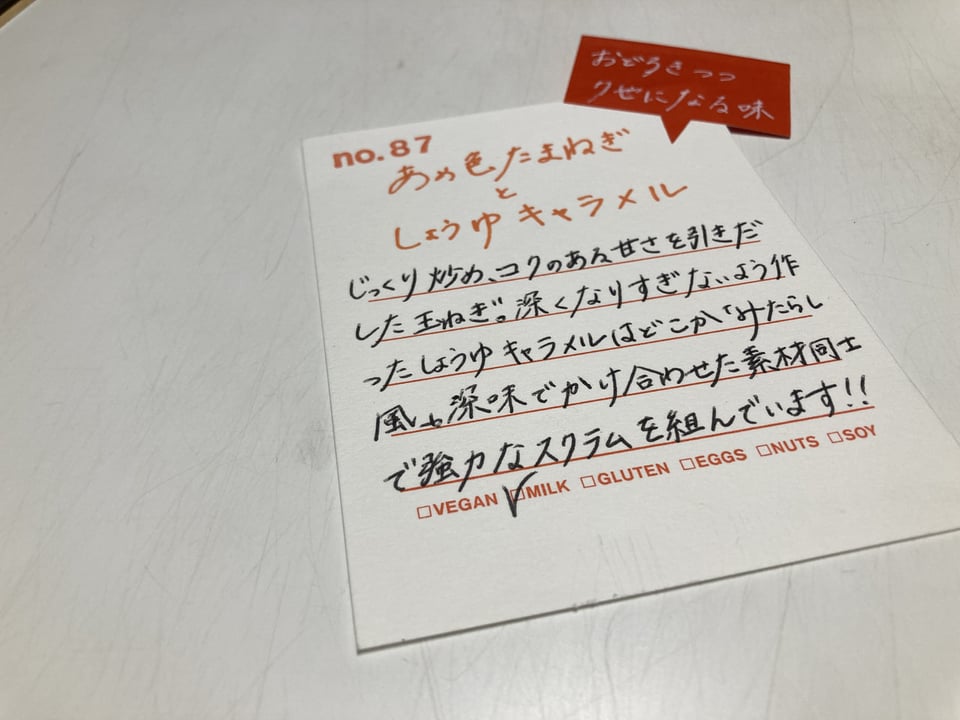 おどろきつつ
クセになる味
no.87
あめ色たまねぎ
と
しょうゆキャラメル
じっくり炒め、コクのある甘さを引きだ
した玉ねぎ。深くなりすぎないよう作
ったしょうゆキャラメルはどこか「みたらし
風」。深味でかけ合わせた素材同士
で強力なスクラムを組んでいます!!
□VEGAN ☑MILK □GLUTEN □EGGS □NUTS □SOY